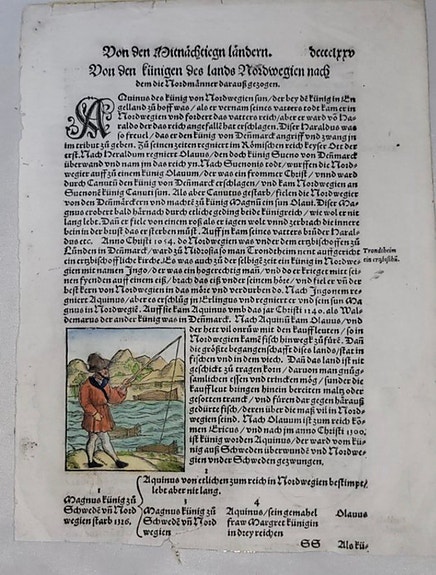 Von den Mitnächtiegn ländern. dccclxxv
Von den künigen des lands Nordwegien nach
dem die Nordmänner darauß gezogen.
AQuinus des künig von Nordwegien sun/der bey dē künig in En-
gelland zů hoff was/als er vernam seines vatters todt kam er in
Nordwegien vnd fordert das vatters reich/aber er ward vō Ha-
raldo der das reich angefallē hat erschlagen. Diser Haraldus was
so freuel/das er den künig von Denmarck angriff vnd zwang jn
im tribut zů geben. Zů seinen zeiten regniert im Römischen reich keyser Ott der
erst. Nach Heraldum regniert Olauus/den doch künig Sueno von Denmarck
überwand vnd nam jm das reich. Nach Suenonis todt/wurffen die Nordwe-
gier auff zů einem künig Olauum/der was ein frommer Christ/vnnd ward
durch Canuti den künig von Denmarck erschlagen/vnd kam Nordwegien an
Suenonē künig Canuti sun. Als aber Canutus gestarb/fielen die Nordwegier
von den Denmärckern vnd machtē zů künig Magnū ein sun Olaui. Diser Ma-
gnus erobert bald härnach durch etliche gedieg beide künigreich/wie wol er nit
lang lebt. Dan er fiel von einem roß als er jagen wolt vnnd zerbrach die innere
bein in der brust das er sterben müst. Auff jn kam seines vatters brüder Haral-
dus etc. Anno Christi 1054. do Nordwegien was vnder dem ertzbischoffen zů
Lunden in Denmarck/ward zů Nidrosia so man Trondheim nent auffgericht
ein ertzbischoffliche kirche. Es was auch zů der selbige zeit ein künig in Nordwe-
gien mit namen Ingo/der was ein hogerechtig man/vnd do er krieget mit sei-
nen fynden auff einem eiß/brach das eiß vnder seinem höre/vnd fielen vil der
best kern von Nordwegien in das möre vnd verdurben do. Nach Ingonem re-
gniert Aquinus/aber es erschlůg jn Erlingus vnd regniert er vnd sein sun Ma-
gnus in Nordwegiē. Auff sie kam Aquinus vmb das jar Christi 1140. als Wal-
demarus der ander künig was in Denmarck. Nach Aquinū kam Olauus/vnd
der hett vil onrůw mit den kauffleuten/so in
Nordwegien kamē fisch hinweg zů fürē. Dan
die größte begangenschafft dises lands/stat in
fischen vnd in dem viech. Dan das land ist nit
geschickt zů tragen korn/daruon man gnůg-
samlichen essen vnd trincken mög/sunder die
kauffleut bringen hinein bereiten maltz oder
gesotten tranck/vnd füren dar gegen härauß
gedürte fisch/deren über die maß vil in Nord-
wegien seind. Nach Olauum ist zum reich kō-
men Ericus/vnd nach jm anno Christi 1300.
ist künig worden Aquinus/der ward vom kü-
nig auß Schweden überwundē vnd Nordwe-
gien vnder Schweden gezwungen.
Trondeheim
ein ertzbistū.
Aquinus von etlichen zum reich in Nordwegien bestimpt/
lebt aber nit lang.
1
Magnus künig zů
Schwedē vn̄ Nord
wegien starb 1326.
1
Magnus künig zů
Schwedē vn̄ Nord
wegien
4
Aquinus/sein gemahel
fraw Margret künigin
in drey reichen
Olauus
SS Als kü-